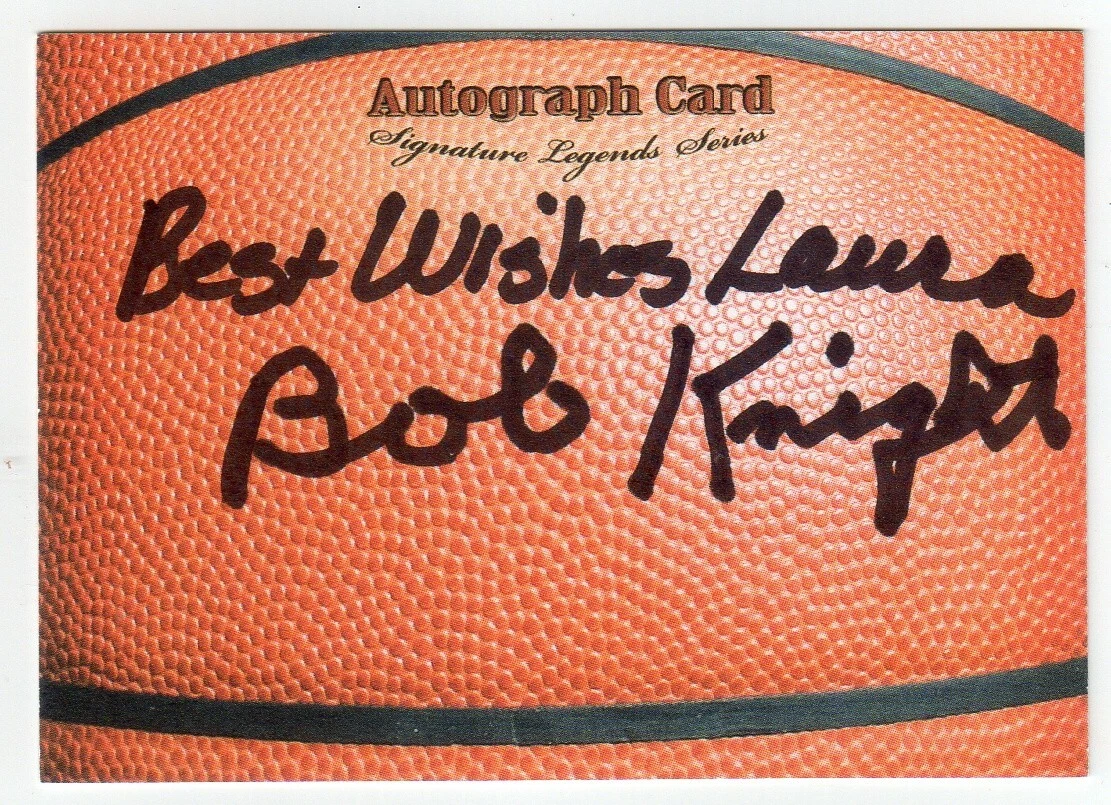 Autograph Card
Signature Legends Series
Best Wishes Laura
Bob Knight